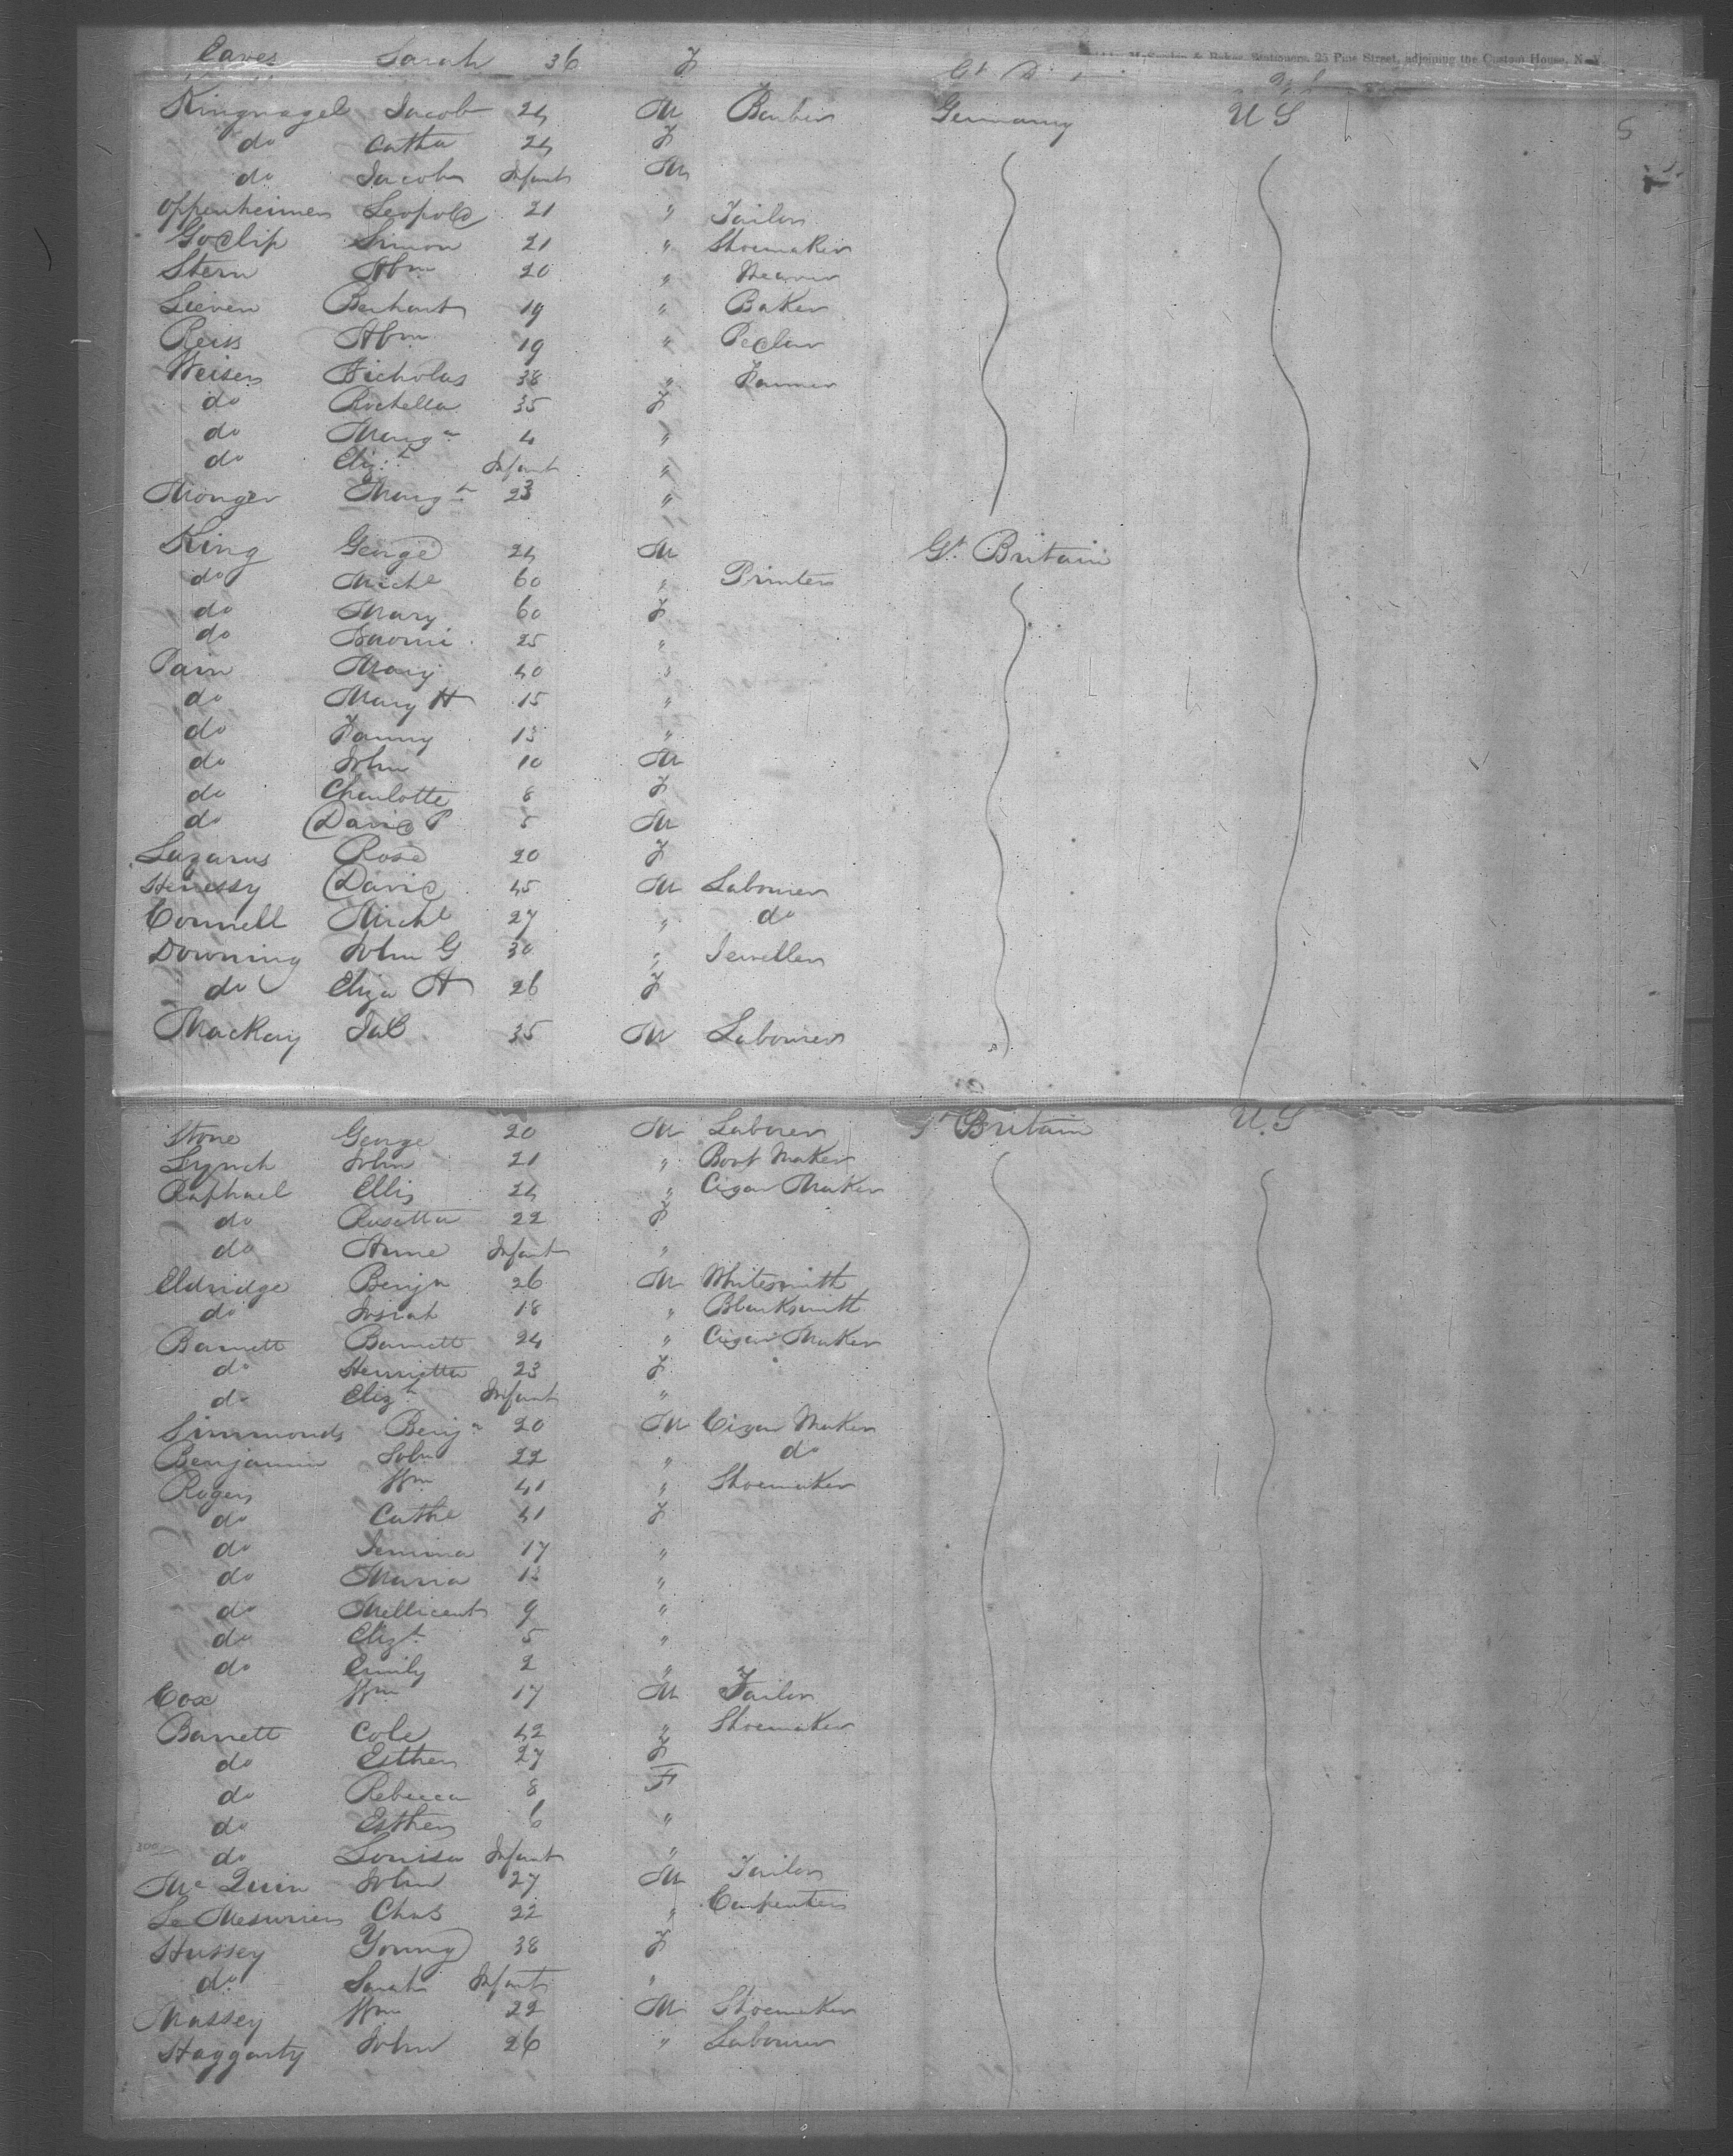 Eaves Sarah 36 F
& Baker, Stationers, 25 Pine Street, adjoining the Custom House, N.Y.
Kingnagel Jacob 24 M Barber Germany U S
do Catha 24 F
do Jacob Infant M
Oppenheimer Leopold 21 " Tailor
Goclip Simon 21 " Shoemaker
Stern Abm 20 " Weaver
Lieven Barhart 19 " Baker
Reiss Abm 19 " Pedlar
Weiser Nicholas 38 " Farmer
do Rochella 35 F
do Marga 4 "
do Elizth Infant "
Monger Margt 23 "
King George 24 M Gt Britain
do Michl 60 " Printer
do Mary 60 F
do Naomi 25 "
Pain Mary 40 "
do Mary H 15 "
do Fanny 13 "
do John 10 M
do Charlotte 8 F
do David P 5 M
Lazarus Rose 20 F
Henessy David 45 M Labourer
Connell Michl 27 " do
Downing John G 30 " Jeweller
do Eliza A 26 F
MacKay Jas 35 M Labourer
Stone George 20 M Laborer Britain U.S
Lynch John 21 " Boot Maker
Raphael Ellis 24 " Cigar Maker
do Rosetta 22 F
do Anne Infant "
Eldridge Benjn 26 M Whitesmith
do Josiah 18 " Blacksmith
Barnett Barnett 24 " Cigar Maker
do Henrietta 23 F
do Elizh Infant "
Simmonds Benjn 20 M Cigar Maker
Benjamin John 22 " do
Rogers Wm 41 " Shoemaker
do Cathe 41 F
do Jemima 17 "
do Maria 13 "
do Mellicent 9 "
do Elizt 5 "
do Emily 2 "
Cox Wm 17 M Tailor
Barrett Cole 42 " Shoemaker
do Esther 27 F
do Rebecca 8 F
do Esther 6 "
300
do Louisa Infant "
Mc Quin John 27 M Tailor
Le Mesurier Chas 22 " Carpenter
Hussey Young 38 F
do Sarah Infant "
Massey Wm 22 M Shoemaker
Haggarty John 26 " Labourer